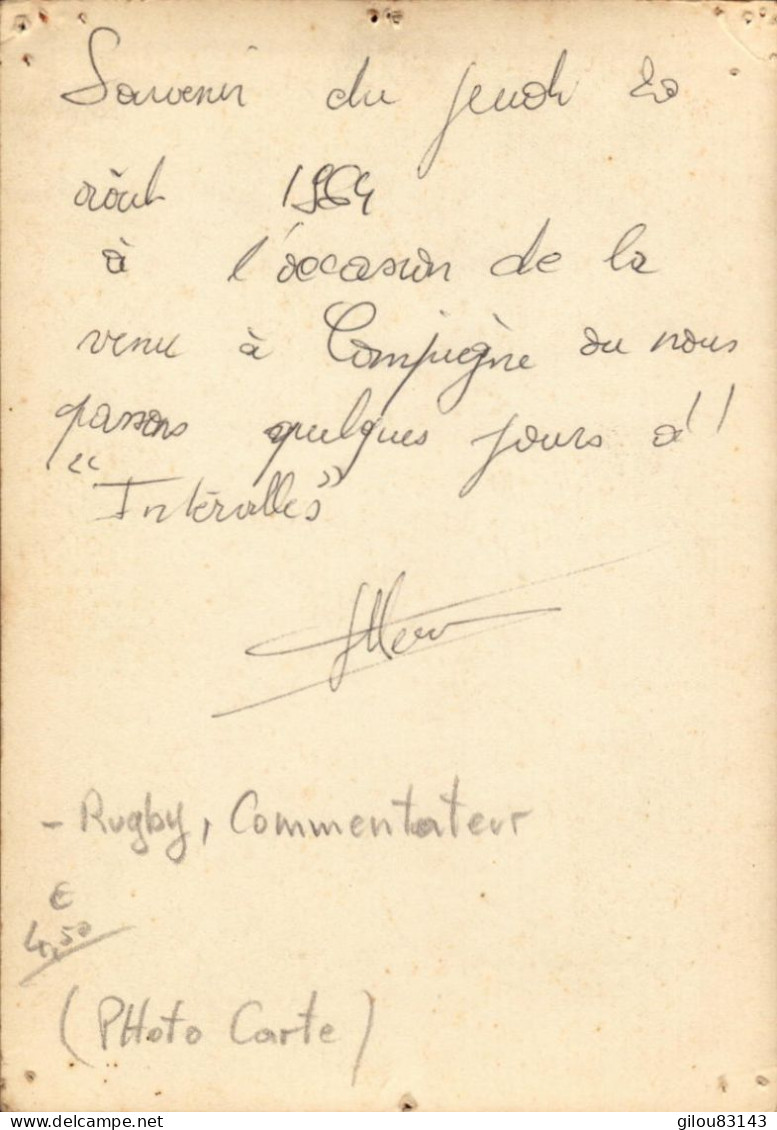 Souvenir du jeudi 20
août 1964
à l'occasion de la
venu à Compiègne ou nous
passons quelques jours à !!
"Intervalles"
- Rugby, Commentateur
€
4,50
(PHoto Carte)
delcampe.net
gilou83143